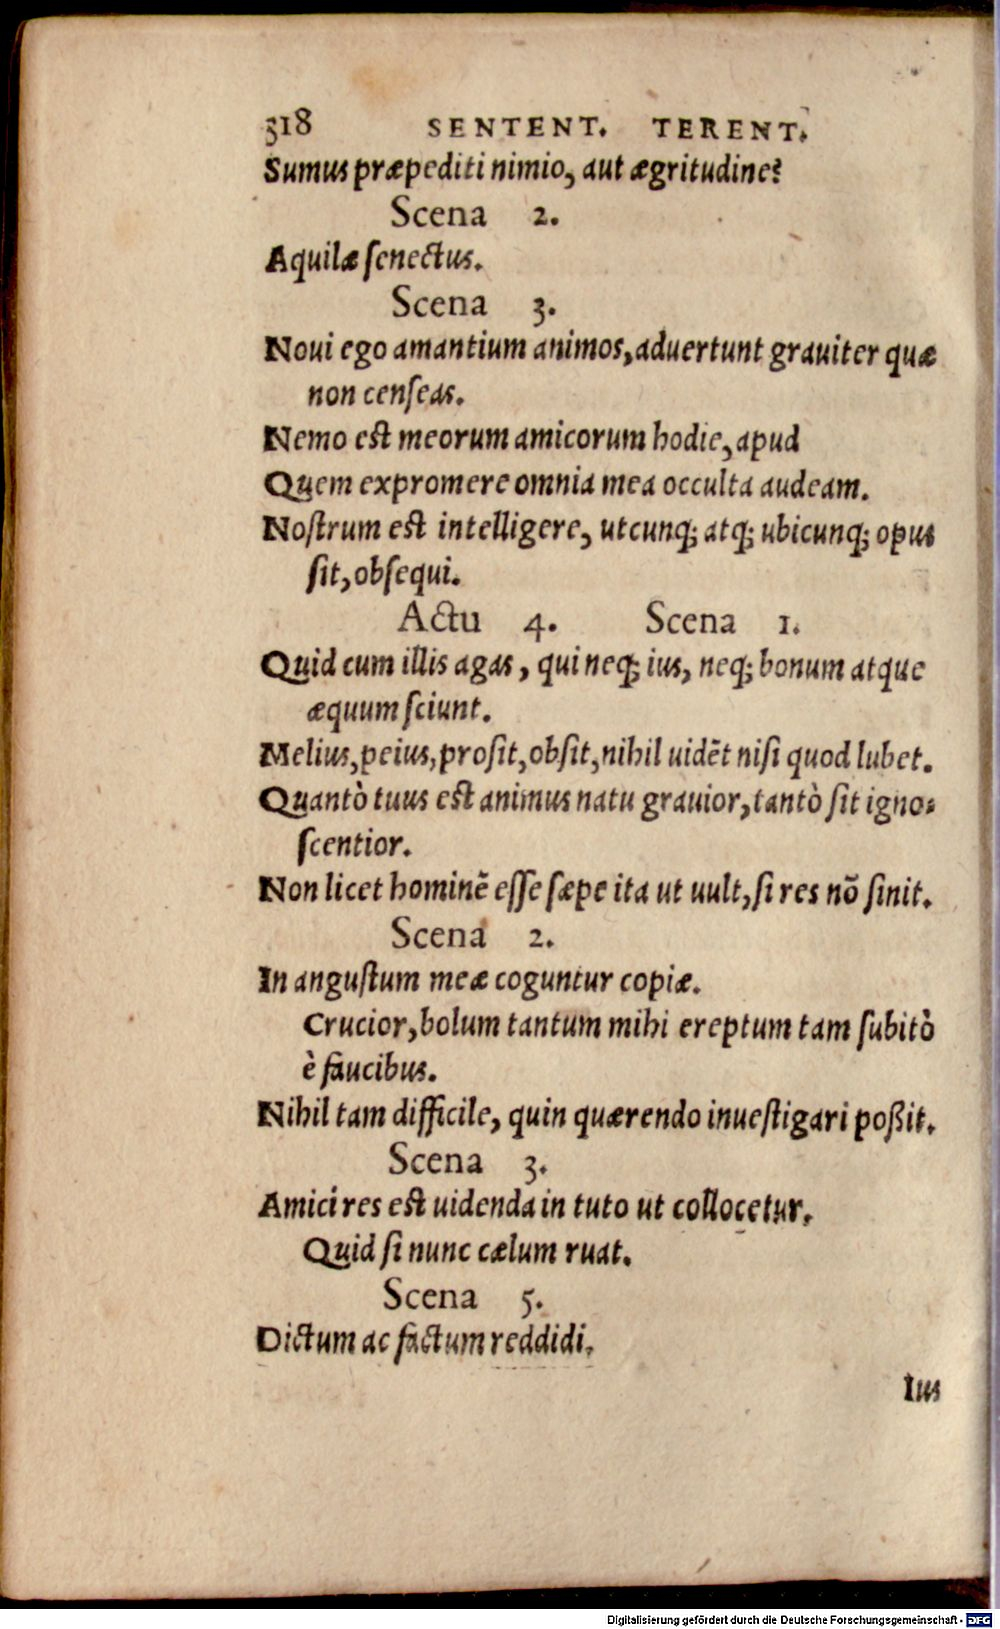 318 SENTENT. TERENT.
Sumus præpediti nimio, aut ægritudine?
Scena 2.
Aquilæ ſenectus.
Scena 3.
Noui ego amantium animos, aduertunt grauiter quæ
non cenſeas.
Nemo est meorum amicorum hodie, apud
Quem expromere omnia mea occulta audeam.
Noſtrum est intelligere, utcunq; atq; ubicunq; opus
ſit, obſequi.
Actu 4. Scena 1.
Quid cum illis agas, qui neq; ius, neq; bonum atque
æquum ſciunt.
Melius, peius, proſit, obſit, nihil uidēt niſi quod lubet.
Quantò tuus est animus natu grauior, tantò ſit igno-
ſcentior.
Non licet hominē eſſe ſæpe ita ut uult, ſi res nō ſinit.
Scena 2.
In anguſtum meæ coguntur copiæ.
Crucior, bolum tantum mihi ereptum tam ſubitò
è faucibus.
Nihil tam difficile, quin quærendo inueſtigari poßit.
Scena 3.
Amici res est uidenda in tuto ut collocetur.
Quid ſi nunc cælum ruat.
Scena 5.
Dictum ac factum reddidi.
Ius
Digitalisierung gefördert durch die Deutsche Forschungsgemeinschaft - DFG